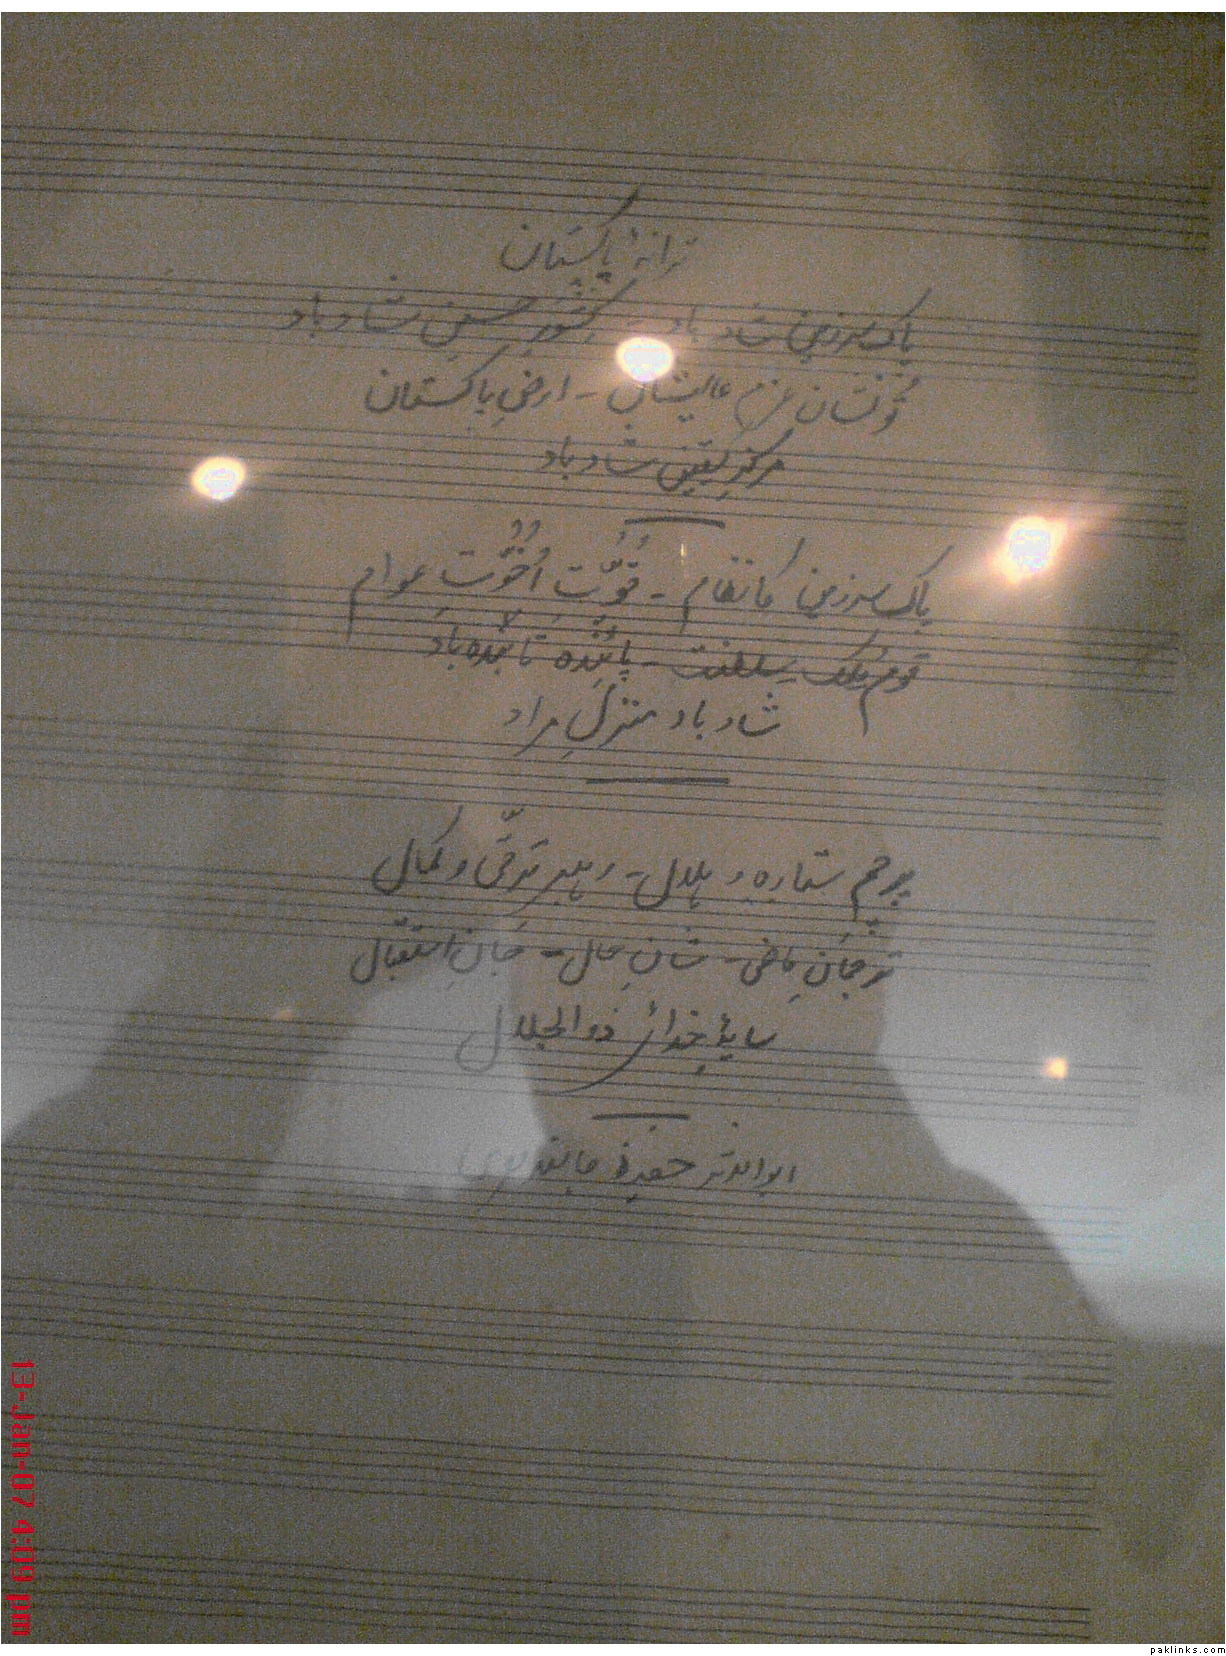 ترانۂ پاکستان
پاک سرزمین شاد باد - کشورِ حسین شاد باد
تُو نشانِ عزمِ عالیشان - ارضِ پاکستان
مرکزِ یقین شاد باد
پاک سرزمین کا نظام - قُوّتِ اُخُوّتِ عوام
قوم مُلک سلطنت - پائندہ تابندہ باد
شاد باد منزلِ مراد
پرچمِ ستارہ و ہلال - رہبرِ ترقّی و کمال
ترجمانِ ماضی - شانِ حال - جانِ استقبال
سایۂ خدائے ذوالجلال
ابوالاثر حفیظ جالندھری
13-Jan-07 4:09 pm
paklinks.com